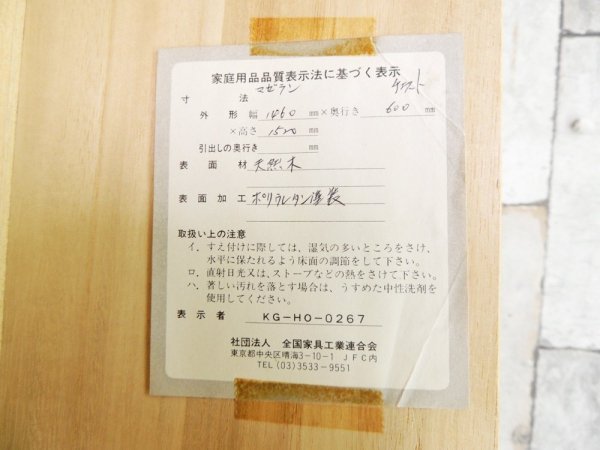 家庭用品品質表示法に基づく表示
マゼラン チェスト
寸法
外形 幅 1460 mm ×奥行き 600 mm
×高さ 1520 mm
引出しの奥行き mm
表面材 天然木
表面加工 ポリウレタン塗装
取扱い上の注意
イ．すえ付けに際しては、湿気の多いところをさけ、
水平に保たれるよう床面の調節をして下さい。
ロ．直射日光又は、ストーブなどの熱をさけて下さい。
ハ．著しい汚れを落とす場合は、うすめた中性洗剤を
使用してください。
表示者 KG-HO-0267
社団法人 全国家具工業連合会
東京都中央区晴海3-10-1 JFC内
TEL (03)3533-9551